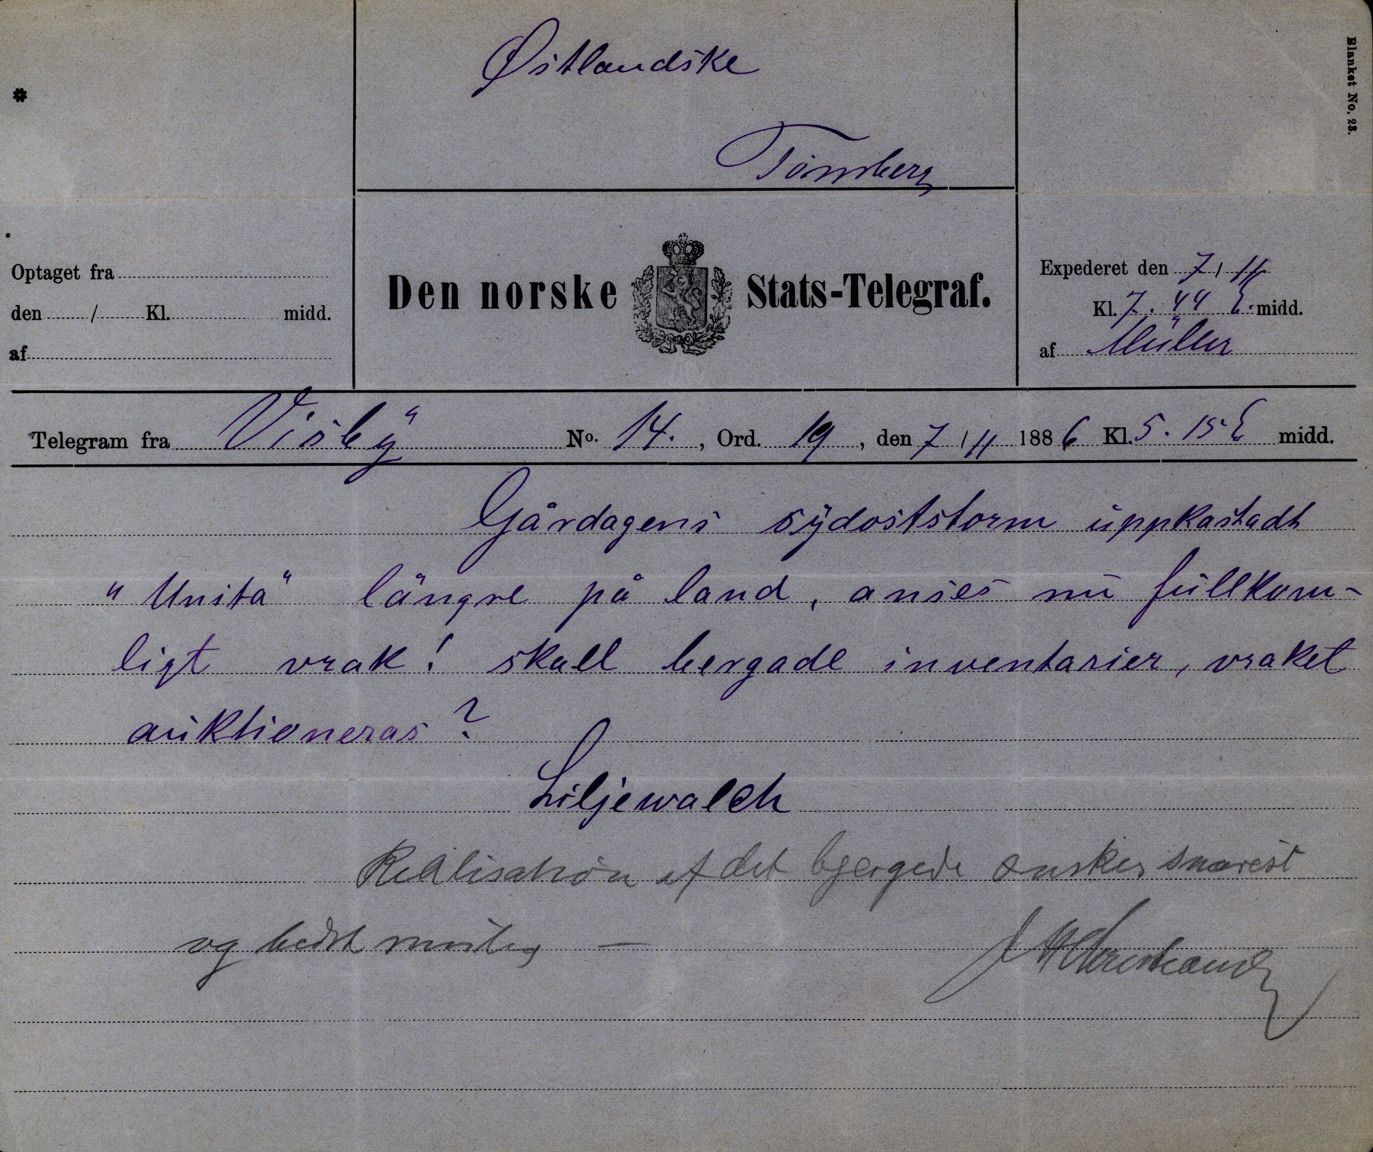 Blanket No. 23.
Østlandske
Tönsberg
Optaget fra
den / Kl. midd.
af
Den norske Stats-Telegraf.
Expederet den 7 / 11
Kl. 7.44 E. midd.
af Müller
Telegram fra Visby No. 14. , Ord. 19 , den 7 / 11 1886 Kl. 5.15 E midd.
Gårdagens sydoststorm uppkastadt
"Unita" längre på land, anses nu fullkom-
ligt vrak! skall bergade inventarier, vraket
auktioneras?
Liljewalch
Realisation af det bjergede ønskes snarest
og bedst mulig —